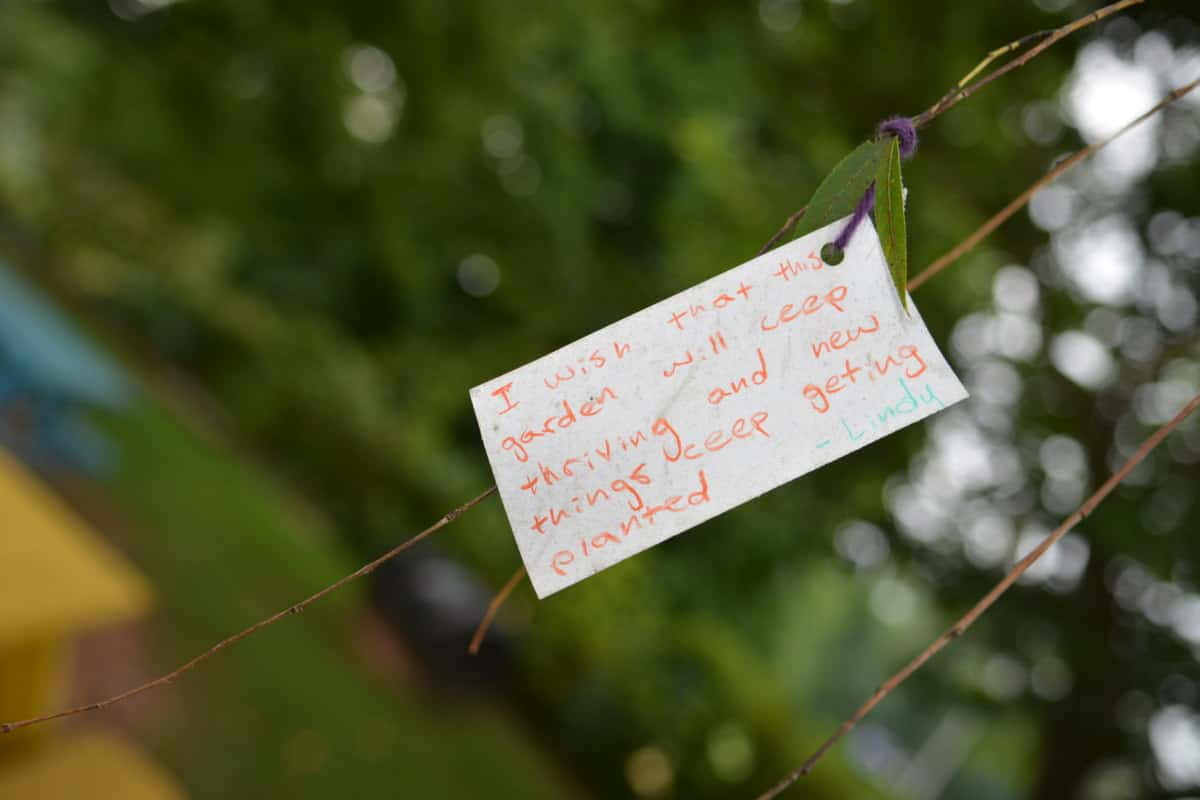 I wish that this
garden will ceep
thriving and new
things ceep geting
planted
- Lindy